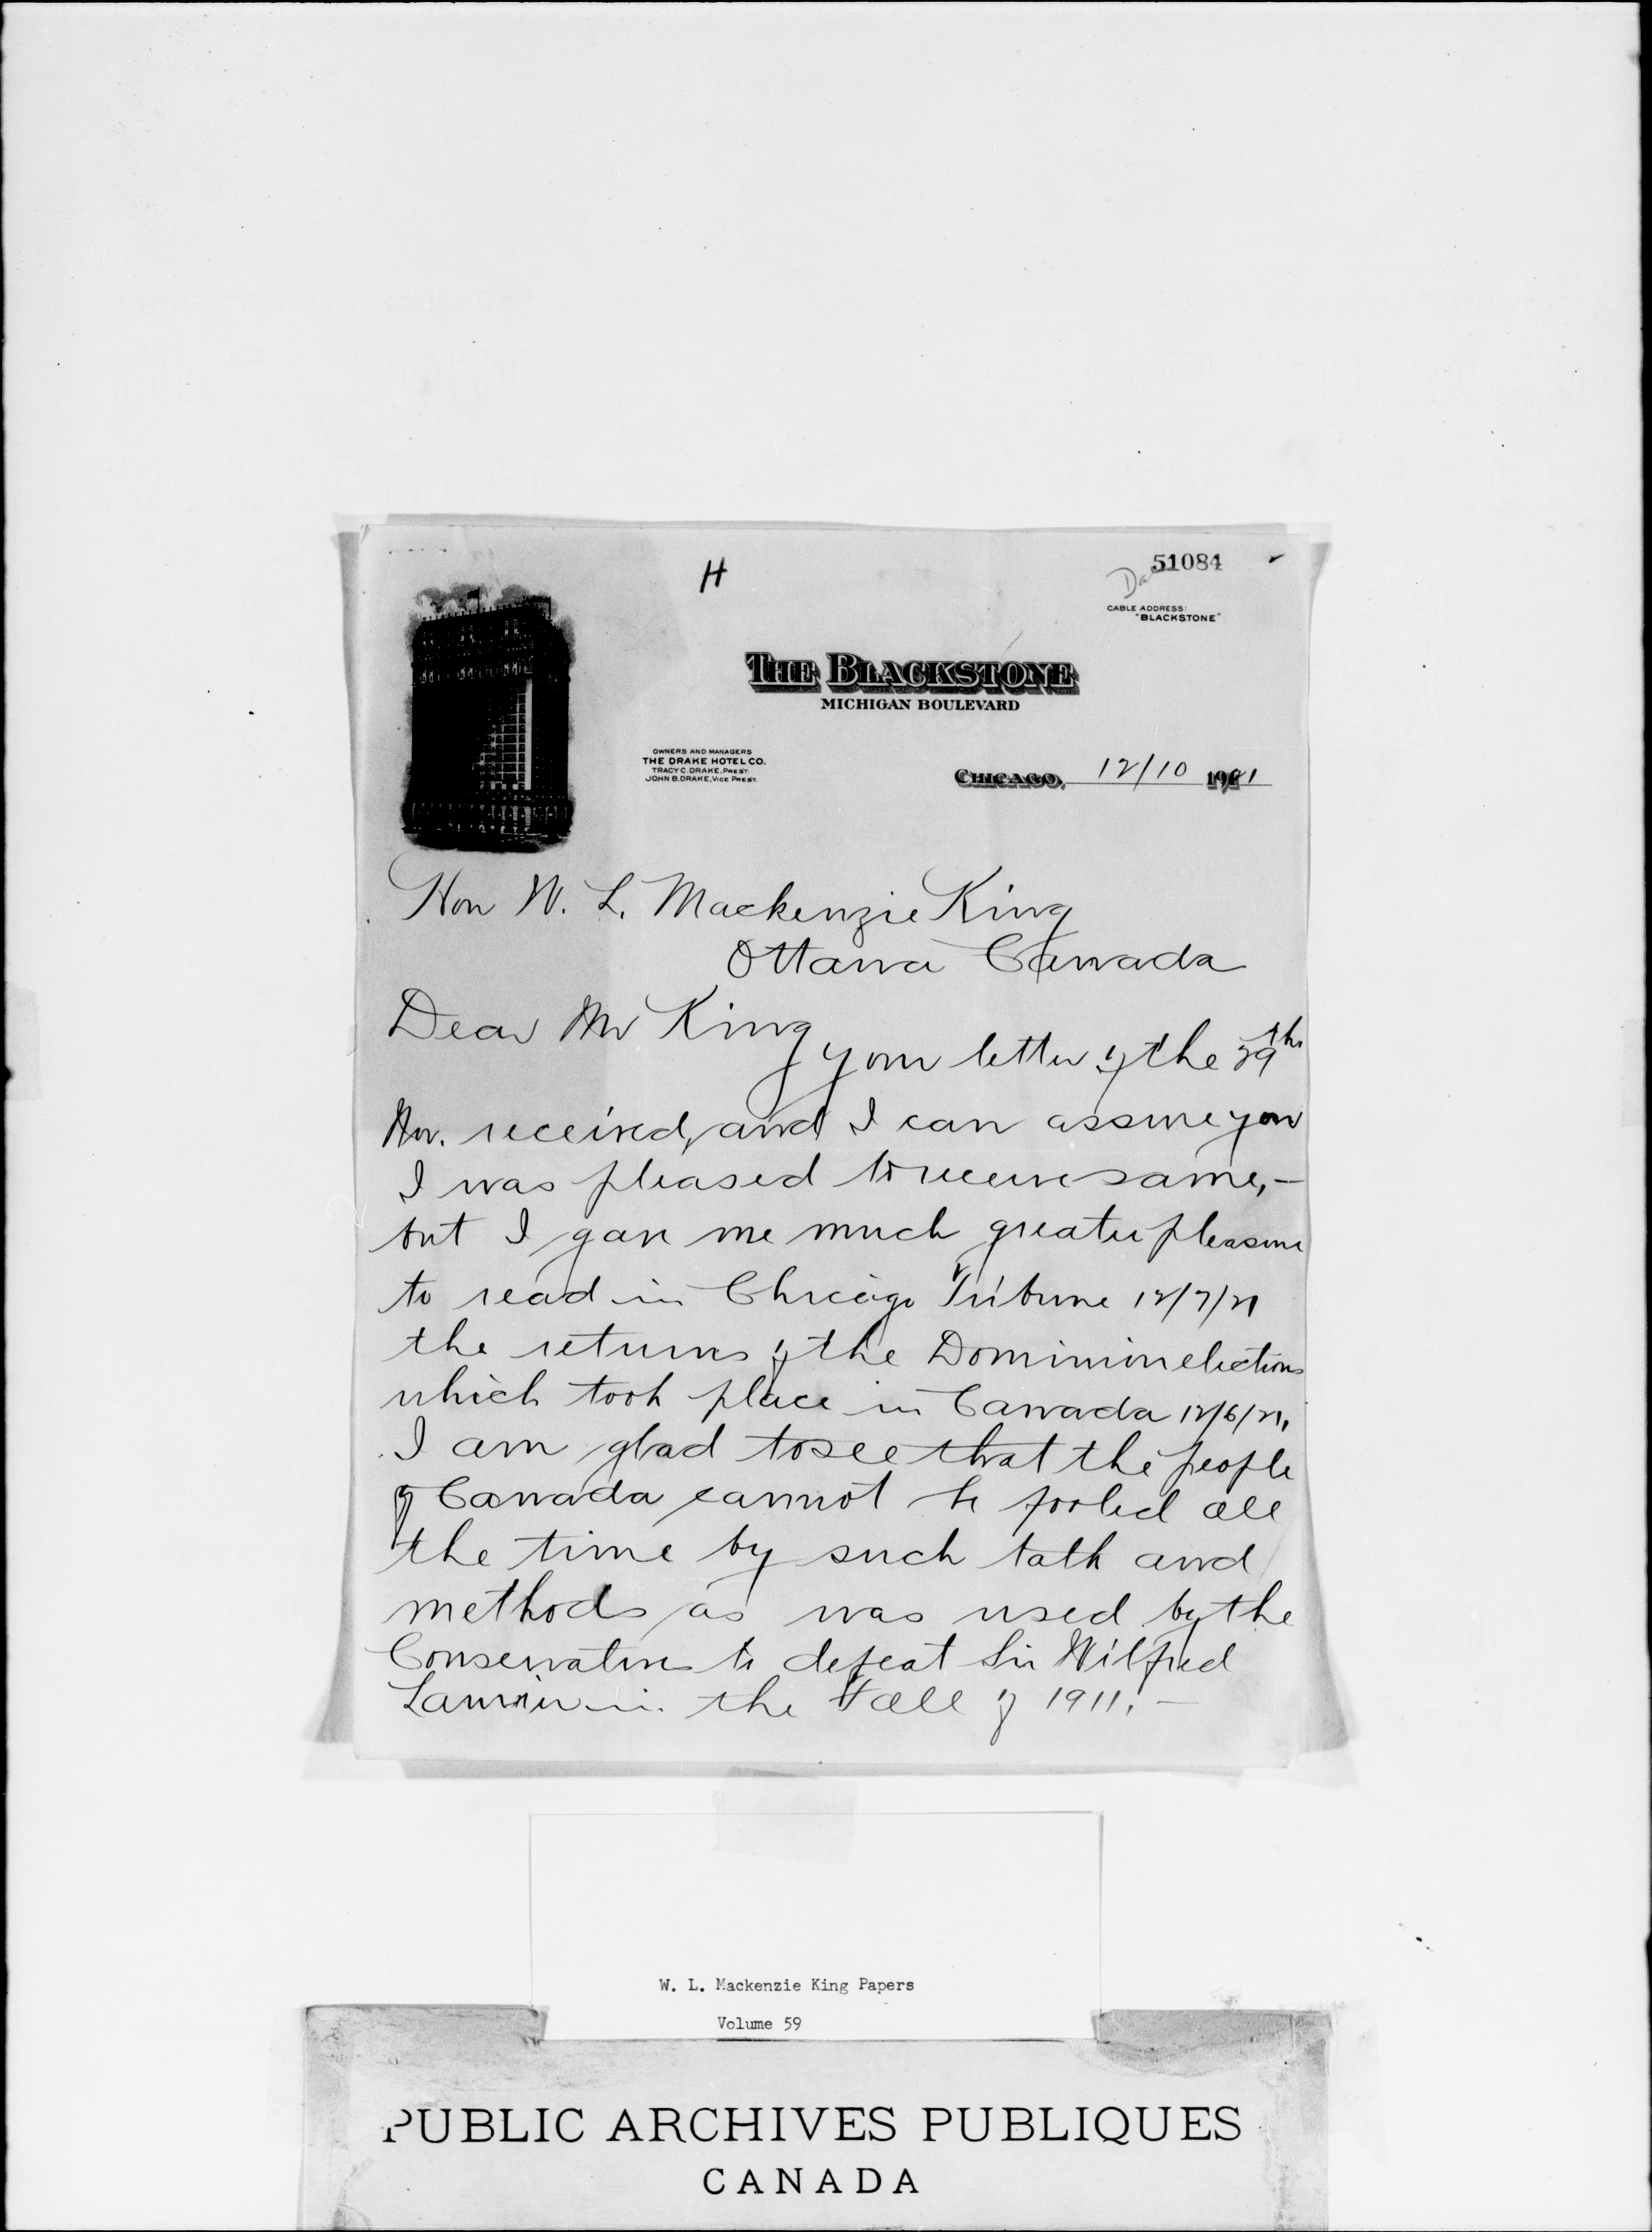 H
51084
Da
CABLE ADDRESS:
"BLACKSTONE"
THE BLACKSTONE
MICHIGAN BOULEVARD
OWNERS AND MANAGERS
THE DRAKE HOTEL CO.
TRACY C. DRAKE, PREST.
JOHN B. DRAKE, VICE PREST.
CHICAGO, 12/10 1921
Hon W. L. Mackenzie King
Ottawa Canada
Dear Mr King
your letter of the 29th
Nov. received, and I can assure you
I was pleased to receive same, -
but I gave me much greater pleasure
to read in Chicago Tribune 12/7/21
the returns of the Dominion elections
which took place in Canada 12/6/21,
I am glad to see that the people
of Canada cannot be fooled all
the time by such talk and
methods as was used by the
Conservatives to defeat Sir Wilfred
Laurier in the Fall of 1911. -
W. L. Mackenzie King Papers
Volume 59
PUBLIC ARCHIVES PUBLIQUES
CANADA